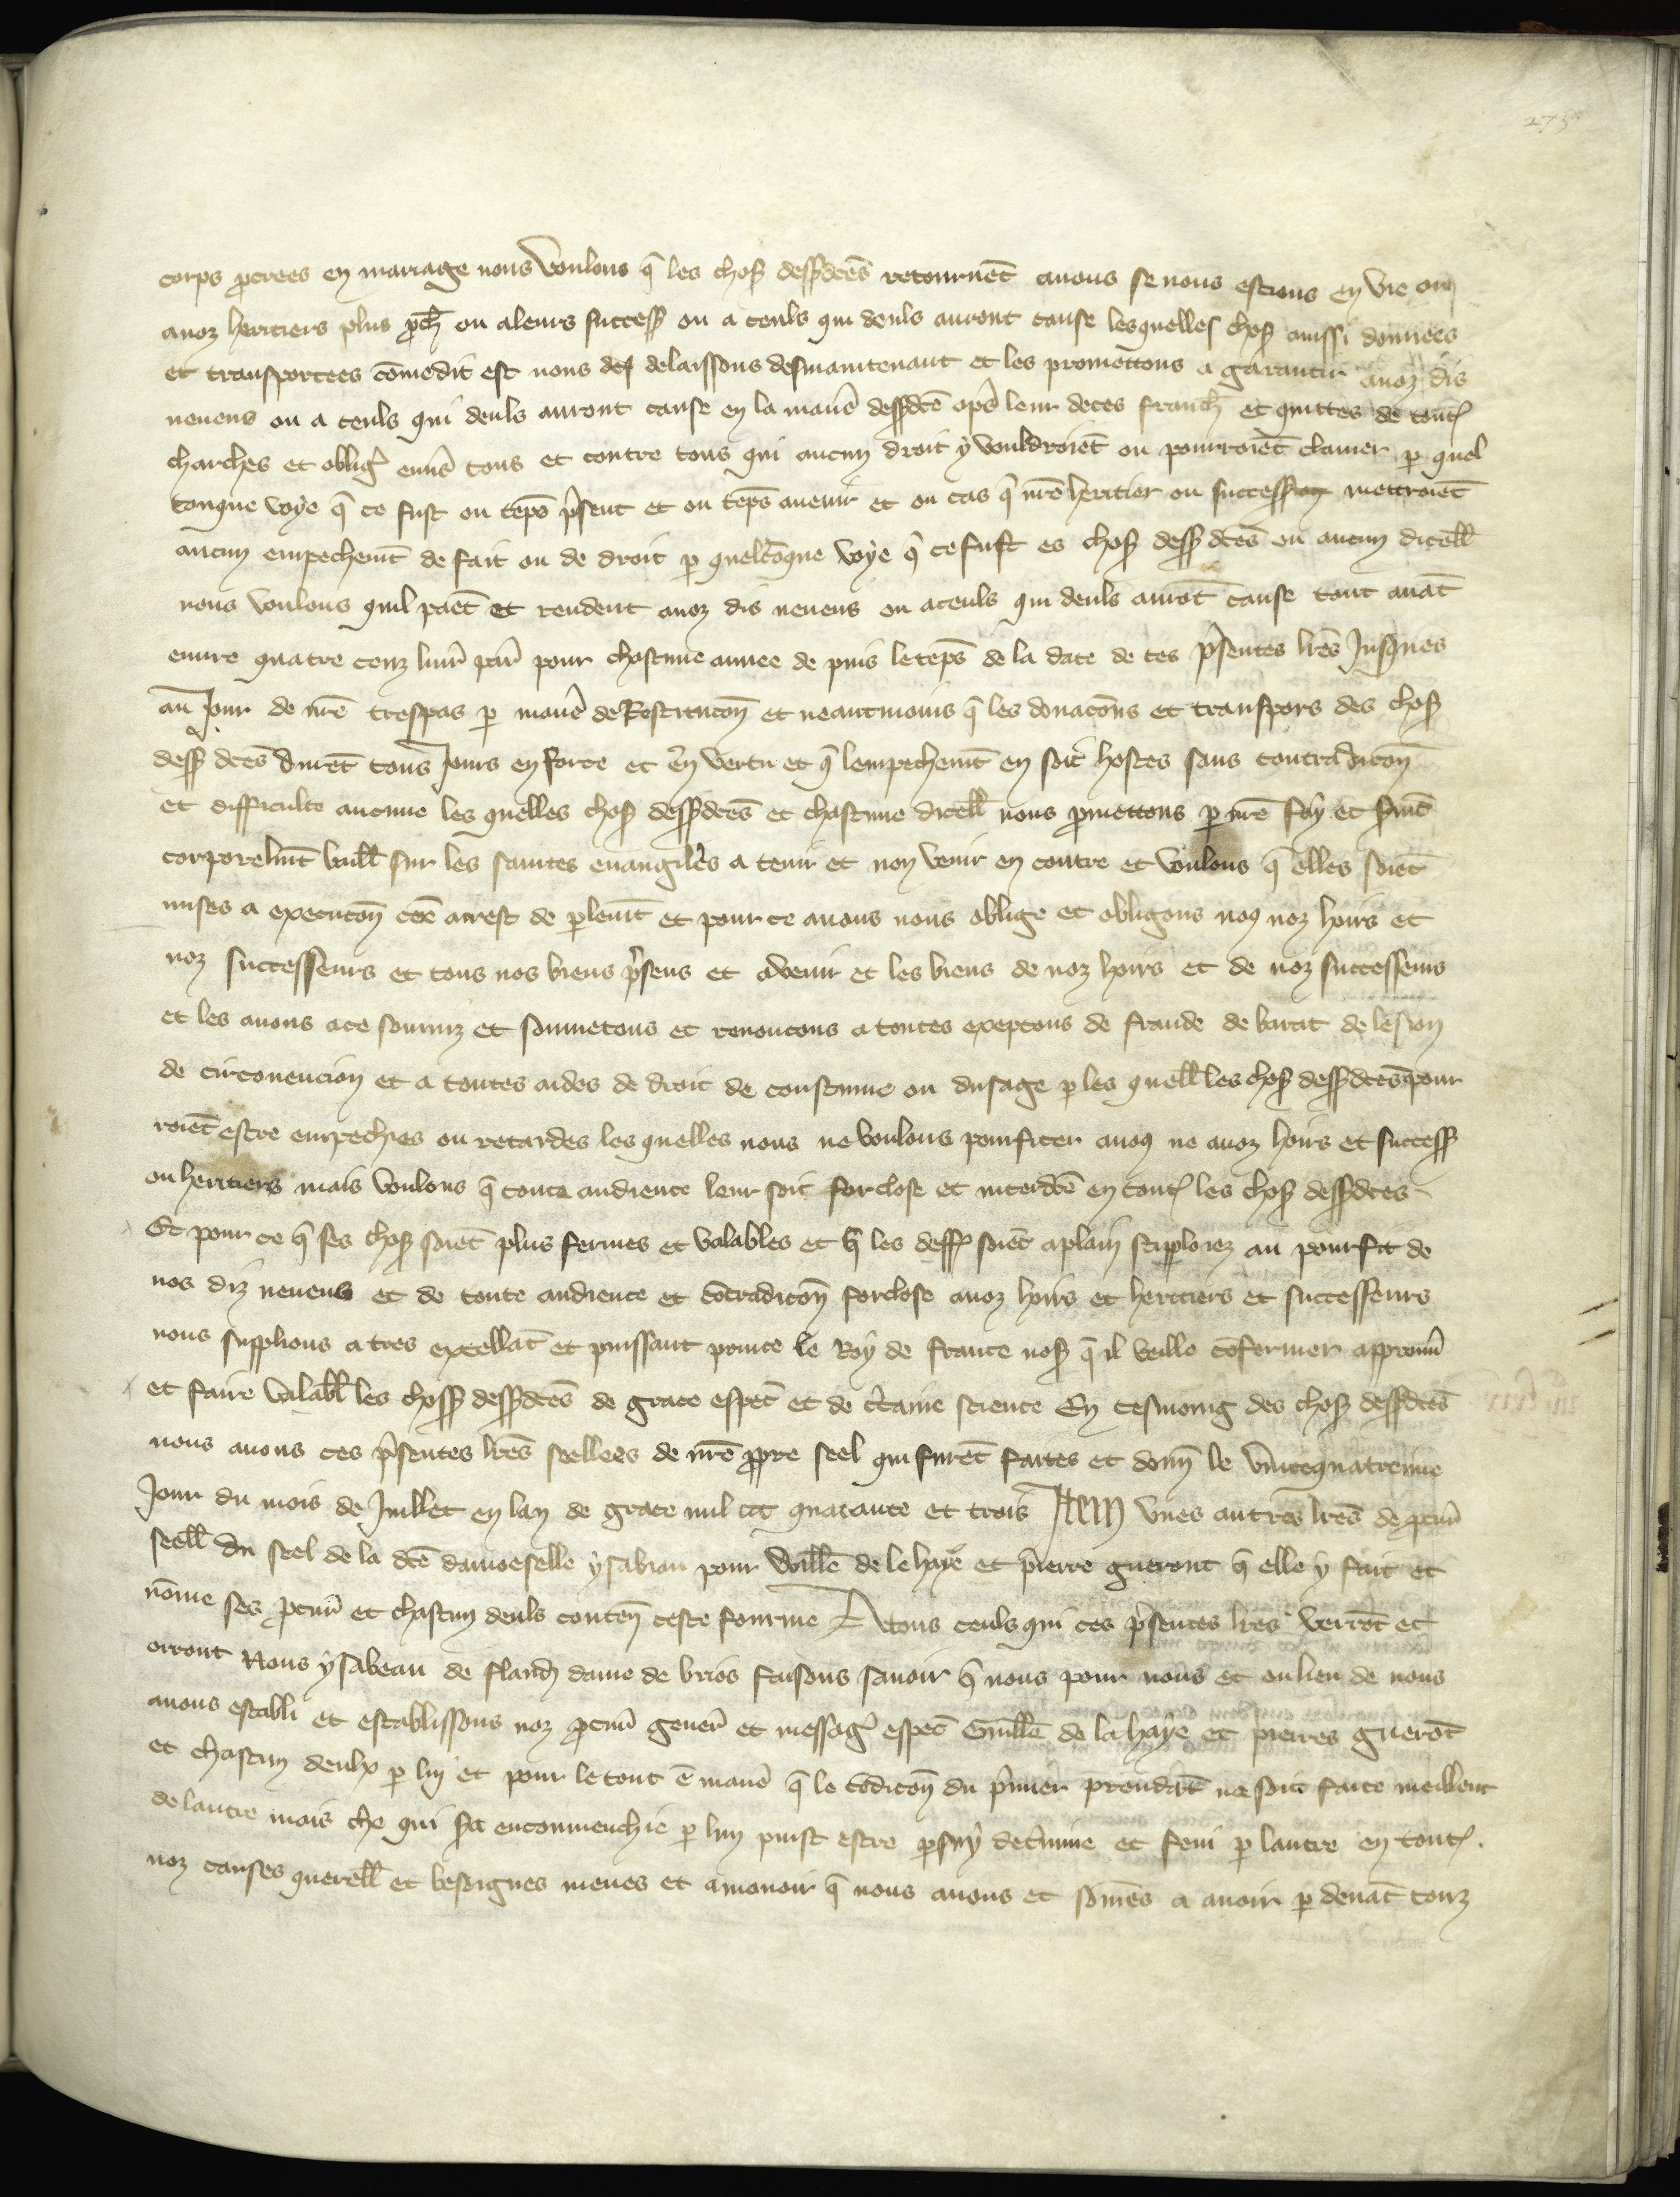 corps p̄crees en mariage nous voulons q̄ les chos dessdc̄es retournēt anous se nous estions en vie ou
anoz heritiers plus p̄ch ou aleurs success ou a ceuls qui deuls auront cause lesquelles chos aussi donnees
et transportees cōmedit est nous des delaissons desmaintenant et les promettons a garantir anoz dis
neueus ou a ceuls qui deuls auront cause en la manē dessdc̄e aps leur deces franch et quittes de tout
charches et oblig enus tous et contre tous qui aucun droit y vouldroiēt ou pourroiēt clamer p quel
conque voye q̄ ce fust ou tēps psent et ou tēps auenir et ou cas q̄ nrē heritier ou success mettroiēt
aucun empechemt de fait ou de droit p quelcōque voye q̄ cefust es chos dess dc̄es ou aucun dicell
nous voulons quil paēt et rendent anoz dis neueus ou aceuls qui deuls aurōt cause tout auāt
euure quatre cenz liur par pour chascune annee de puis letēps de la date de ces psentes lrēs Jusques
au Jour de nrē trespas p manē de Restitucōn et neantmoins q̄ les donacōns et transpors des chos
dess dc̄es durēt tous Jours en force et en vertu et q̄ lempechemt en soit hostes sans contradicōn
et difficulte aucune les quelles chos dessdc̄es et chascune dicell nous pmettons p nrē foy et smt
corporelmt baill sur les saintes euangiles a tenir et non venir en contre et voulons q̄ elles soiēt
mises a execucōn cōe arrest de plemt et pour ce auons nous oblige et obligons no9 noz hoirs et
noz successeurs et tous nos biens psens et avenir et les biens de noz hoirs et de noz successeurs
et les auons ace soumiz et soumetons et renoncons a toutes excepcons de fraude de barat de lesion
de circonuencion et a toutes aides de droit de coustume ou dusage p les quell les chos dessdc̄es pour
roiēt estre empechies ou retardes les quelles nous ne voulons pourfiter ano9 ne anoz hoirs et success
ou heritiers mais voulons q̄ toute audience leur soit forclose et interdc̄e en tout les chos dessdc̄es
Et pour ce q̄ ses chos soiēt plus fermes et valables et q̄ les deff soiēt aplain supploiez au pourfit de
nos diz neueus et de toute audience et cōtradicōn forclose anoz hoirs et heritiers et successeurs
nous supplions a tres excellāt et puissant prince le Roy de france nos q̄ il veille cōfermer approuu
et faire valabl les choss dessdc̄es de grace espec et de ctaine science En tesmoing des chos dessdc̄es
nous auons ces psentes lrēs seellees de nrē ppre seel qui furēt faites et donn le vintequatreime
Jour du mois de Juillet en lan de grace mil ccc quarante et trois Item vnes autres lrēs de pcur
seell du seel de la dc̄e damoeselle ysabiau pour Will̄e de le haye et pierre gueront q̄ elle y fait et
nōme ses pcur et chascun deuls conten ceste fourme A tous ceuls qui ces psentes lrēs verrōt et
orront Nous ysabeau de fland dame de brios faisons sauoir q̄ nous pour nous et ou lieu de nous
auons establi et establissons noz pcur gener et messag espec Guill̄e de la haye et pierres guerōt
et chascun deulx p lui et pour le tout ē manē q̄ le cōdicōn du pmier prendāt ne soit faite meilleur
de lautre mais che qui sa encommenchie p lun puist estre psuy det̄mine et feni p lautre en tout
noz causes querell et besoignes meues et amouoir q̄ nous auons et sōmes a auoir p deuāt touz